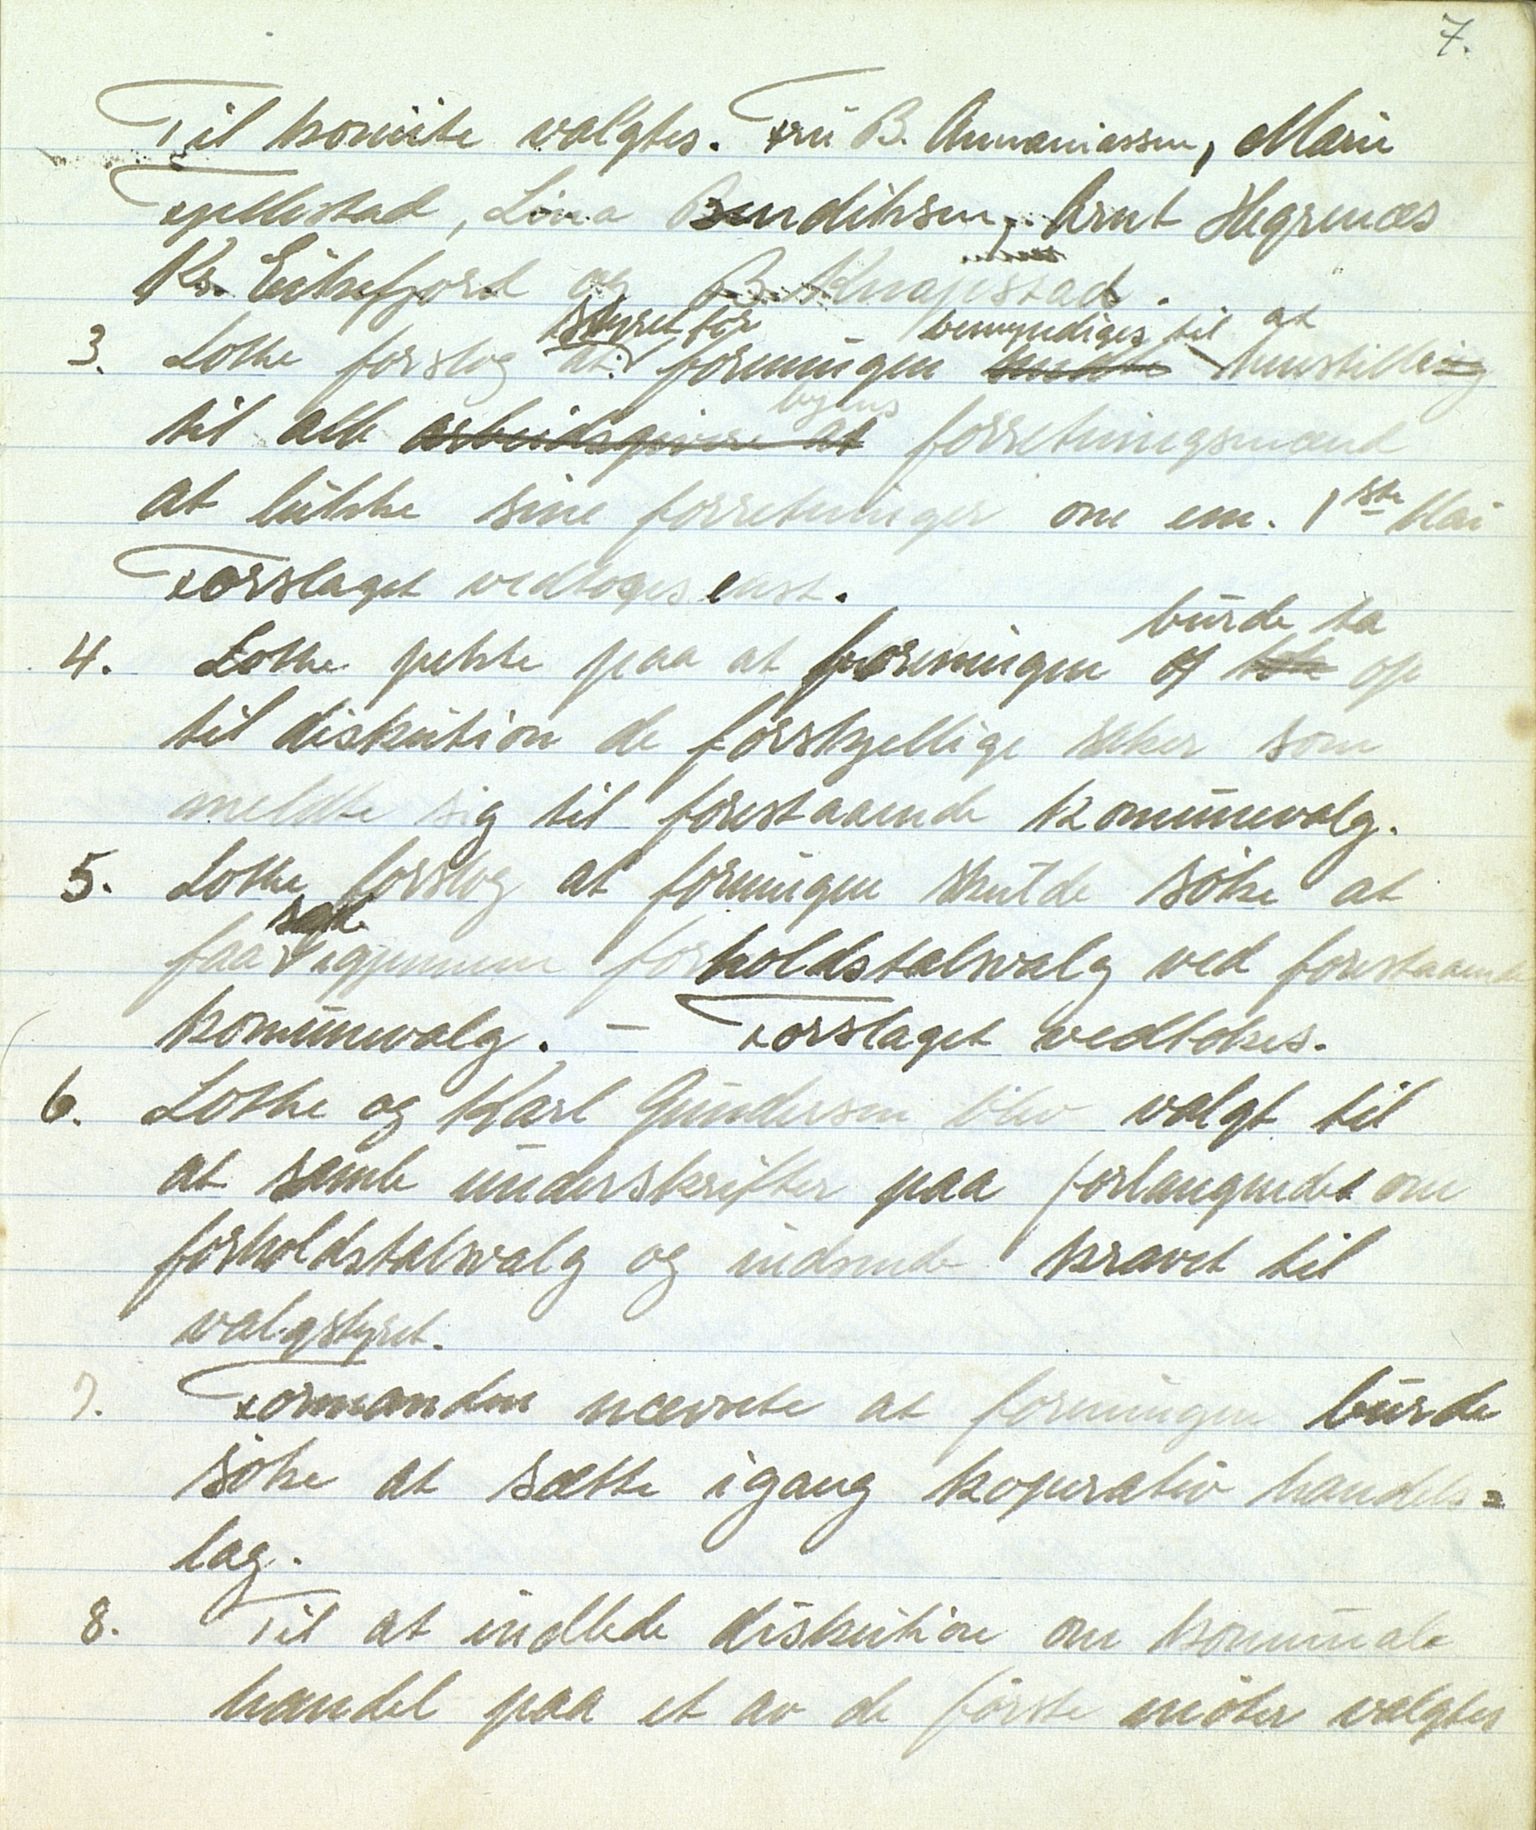 7.
Til komite valgtes. Fru B. Annaniassen, Marie
Fjellestad, Lina Bendiksen, Arnt Hegrenæs
Kr. Eikefjord og B. Knapstad.
styret for bemyndiges til at
3. Lothe forslog at foreningen henstilling
byens
til alle arbeidsgivere at forretningsmænd
at lukke sine forretninger om em. 1ste Mai
Forslaget vedtoges enst.
burde ta
4. Lothe pekte paa at foreningen op
til diskution de forskjellige saker som
meldte sig til forestaaende komunevalg.
5. Lothe forslog at foreningen skulde søke at
faa igjennem forholdstalsvalg ved forestaaende
komunevalg. — Forslaget vedtokes.
6. Lothe og Karl Gundersen blev valgt til
at samle underskrifter paa forlangendet om
forholdstalsvalg og indsende kravet til
valgstyret.
7. Formanden nævnte at foreningen burde
søke at sætte igang koperativ handels=
lag.
8. Til at indlede diskution om komunale
handel paa et av de første møter valgtes